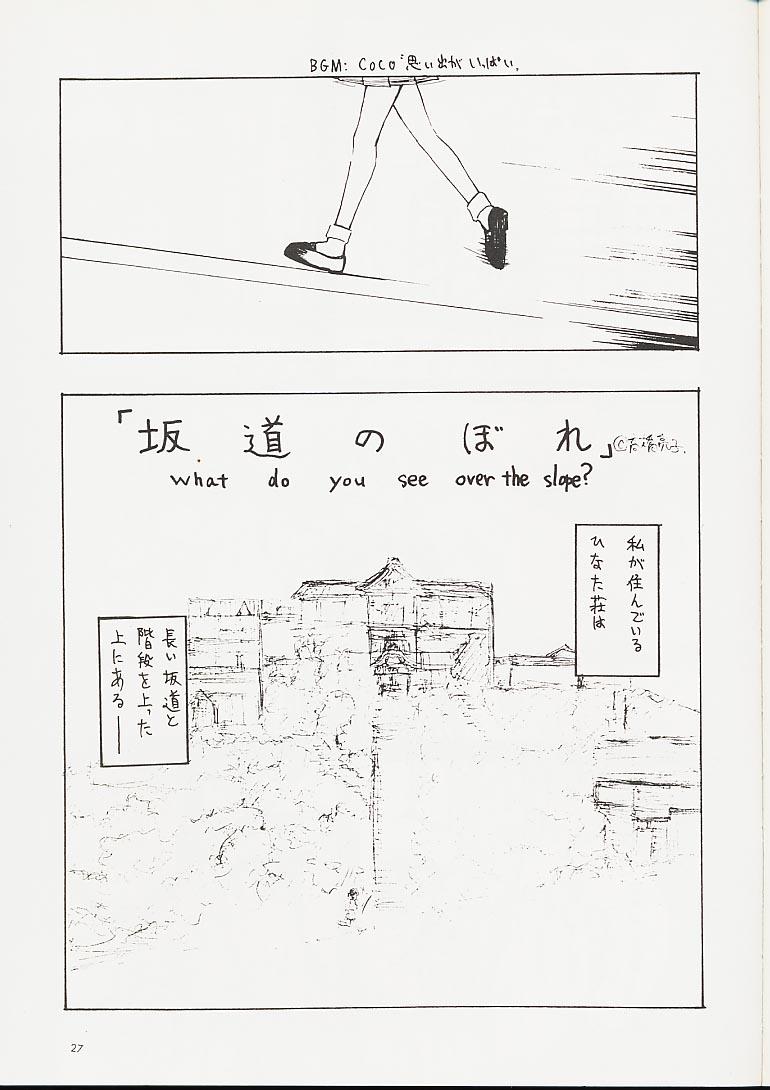 BGM: CoCo"思い出がいっぱい。
「坂道のぼれ」©高橋亮子.
what do you see over the slope?
私が住んでいる
ひなた荘は
長い坂道と
階段を上った
上にある——
27